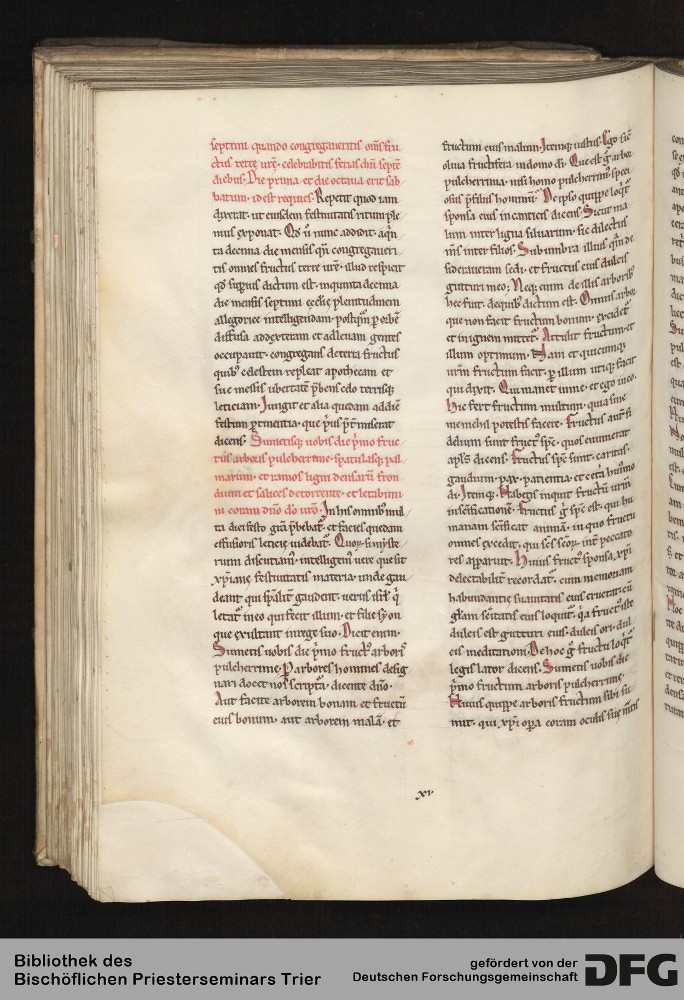 septimi quando congregaueritis om̅s fru
ctus terre ur̅e· celebrabitis ferias dn̅i septe̅
diebus· Die prima et die octaua erit sab
batum· id est requies· Repetit quod iam
dixerat· ut eiusdem festiuitatis ritum ple
nius exponat· Qd̅ u̅ nunc addidit· a qui̅
ta decima die mensis qn̅ congregaueri
tis omnes fructus terre ur̅e· illud respicit
qd̅ sup̅ius dictum est· in quinta decima
die mensis septimi eccl̅ie plenitudinem
allegorice intelligendam· postqua̅ p orbe̅
diffusa ad dexteram et ad leuam gentes
occupauit· congregans de terra fructus
quib; celestem repleat apothecam et
sue messis ubertate̅ p̅bens celo terrisq;
leticiam· Iungit et alia quedam ad die̅
festum p̱tinentia· que p̅us p̅t̅miserat
dicens· Sumetisq; uobis die p̅mo fruc
tus arboris pulcherrime· spatulasq; pal
marum· et ramos ligni densaru̅ fron
dium et salices de torrente· et letabimi
ni coram dn̅o do̅ ur̅o· In his omnib; mul
ta diei festo gr̅a p̅bebat᷑· et facies quedam
effusioris leticie uidebat᷑· Quor̅ si myste
rium discutiam᷒· intelligem᷒ uere que sit
xp̅iane festiuitatis materia· unde gau
deant qui sp̅alit̅ gaudent· uerus isrl̅ q̅
letat᷑ in eo qui fecit illum· et filie syon
que exultant in rege suo· Dicit enim·
Sumetis uobis die p̅mo fruct᷒ arboris
pulcherrime· P arbores homines desig
nari docet nos scriptura· dicente dn̅o·
Aut facite arborem bonam et fructu̅
eius bonum· aut arborem mala̅· et
fructum eius malum· Itemq; iustus· Ego sic̅
oliua fructifera in domo di̅· Que est g̅ arbor
pulcherrima· nisi homo pulcherrim᷒ speci
osus p̅ filiis hominu̅· De ipso quippe loq̅t᷑
sponsa eius in canticis dicens· Sicut ma
lum inter ligna siluarum· sic dilectus
m̅s inter filios· Sub umbra illius qm̅ de
sideraueram sedi· et fructus eius dulcis
gutturi meo· Neq; enim de illis arborib;
hec fuit· de quib; dictum est· Omnis arbor
que non facit fructum bonum· excidet᷑
et in ignem mittet᷑· Attulit fructum et
illum optimum· Nam et quicumq;
ur̅m fructum facit· p illum utiq; facit
qui dixit· Qui manet in me· et ego in eo·
hic fert fructum multum· quia sine
me nichil potestis facere· Fructus aut̅ si
delium sunt fruct᷒ sp̅c· quos enumerat
apl̅s dicens· Fructus sp̅c sunt· caritas·
gaudium· pax· patientia· et cet̅a hui᷒mo
di· Itemq; Habetis inquit fructu̅ ur̅m
in sc̅ificatione̅· Fructus g̅ sp̅c est· qui hu
manam sc̅ificat anima̅· in quo fructu
omnes excedit· qui sc̅s sc̅or̅· int̅ peccato
res apparuit· Huius fruct᷒ sponsa xp̅i
delectabilit̅ recordat᷑· cum memoriam
habundantie suauitatis eius eructat· cu̅
gl̅am sc̅itatis eius loquit᷑· q̅a fruct᷒ iste
dulcis est gutturi eius· dulcis ori· dul
cis meditationi· De hoc g̅ fructu loq̅t᷑
legis lator dicens· Sumetis uobis die
p̅mo fructum arboris pulcherrime·
Huius quippe arboris fructum sibi su
mit· qui xp̅i op̱a coram oculis sue m̅tis
xi·
Bibliothek des
Bischöflichen Priesterseminars Trier
gefördert von der
Deutschen Forschungsgemeinschaft
DFG